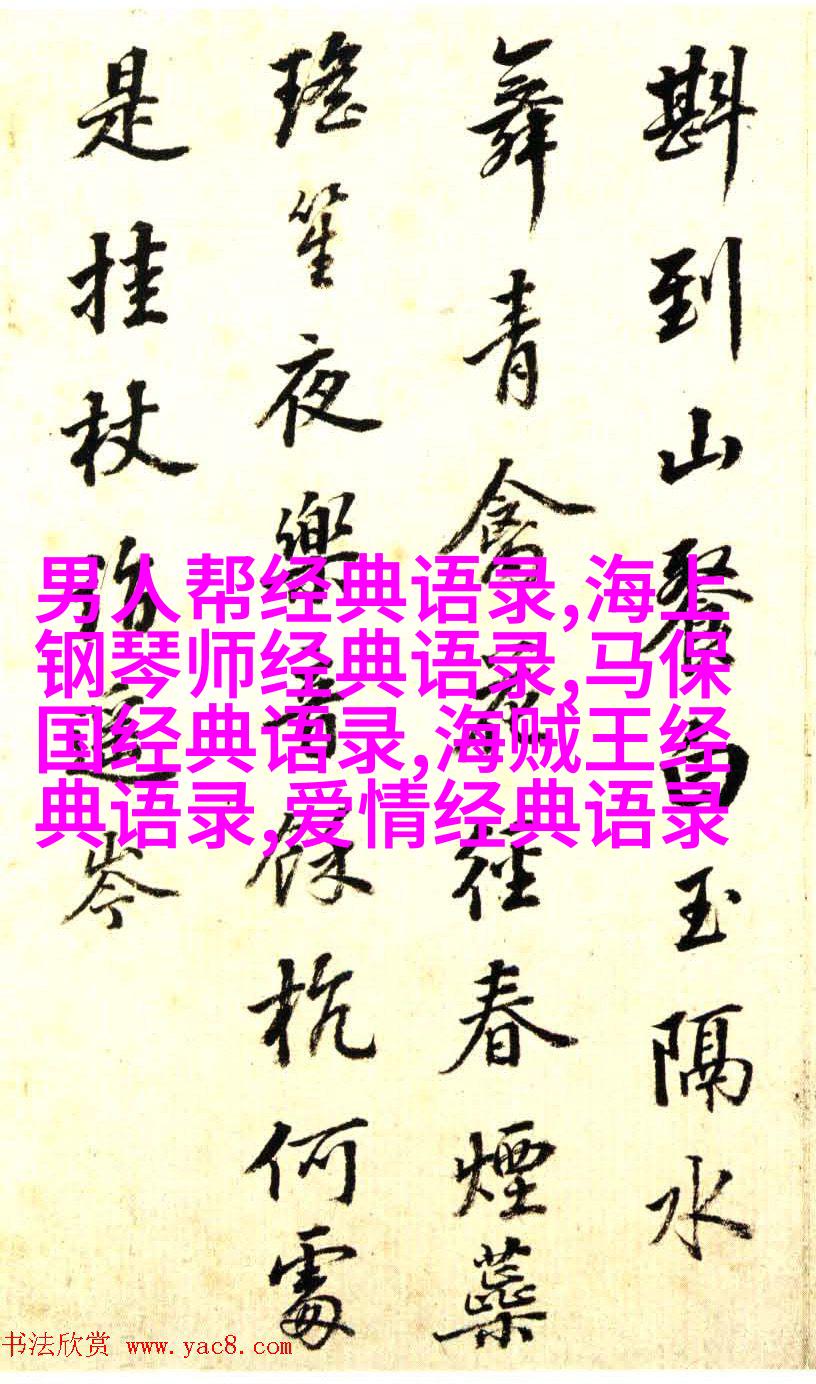 斟到山白玉隔水
舞青禽徑春煙蘂
瑤笙夜樂音餘杭何處
是挂杖遥岑
男人帮经典语录,海上
钢琴师经典语录,马保
国经典语录,海贼王经
典语录,爱情经典语录
书法欣赏 www.yac8.com